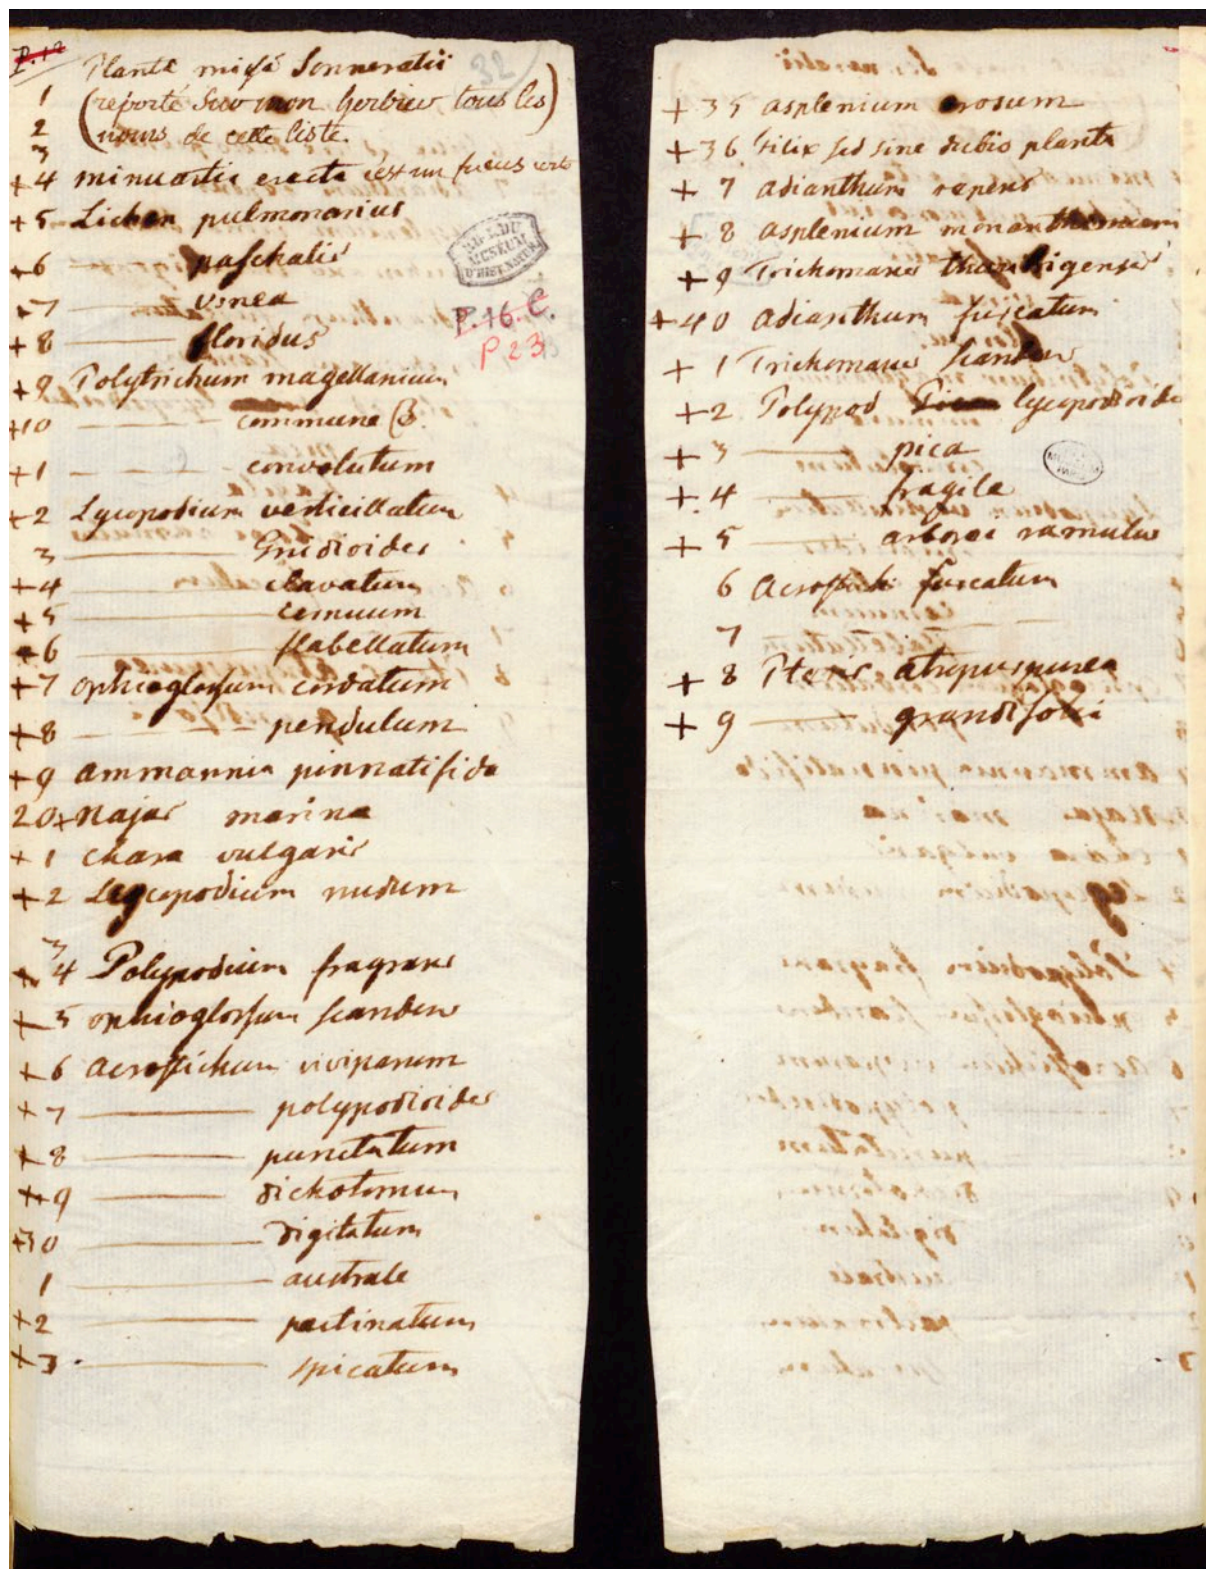 P. 12
32
Plantæ missæ Sonneratii
1 (reporté sur mon herbier tous les)
2 noms de cette liste.
3
+4 minuartia erecta c'est un fucus
+5 Lichen pulmonarius
+6 ——— paschalis
+7 ——— usnea
+8 ——— floridus
P. 16. C.
P 23
+9 Polytrichum magellanicum
+10 — — — — commune β.
+1 — — — convolutum
+2 Lycopodium verticillatum
3 ——— Gnidioides
+4 ——— clavatum
+5 ——— cernuum
+6 ——— flabellatum
+7 ophioglossum cordatum
+8 — — — pendulum
+9 ammannia pinnatifida
20+ najas marina
+1 chara vulgaris
+2 Lycopodium nudum
3
+4 Polypodium fragrans
+5 ophioglossum scandens
+6 acrostichum viviparum
+7 ——— polypodioides
+8 ——— punctatum
+9 ——— dichotomum
+30 ——— digitatum
1 ——— australe
+2 ——— pectinatum
+3 ——— spicatum
+35 asplenium erosum
+36 filix sed sine dubio planta
+7 adianthum repens
+8 asplenium monanthemum
+9 Trichomanes
+40 adianthum furcatum
+1 Trichomanes scandens
+2 Polypod lycopodioides
+3 ——— pica
+4 ——— fragile
+5 ——— arborei ramulus
6 acrostich furcatum
7 — — —
+8 Pteris atropurpurea
+9 ——— grandifolia